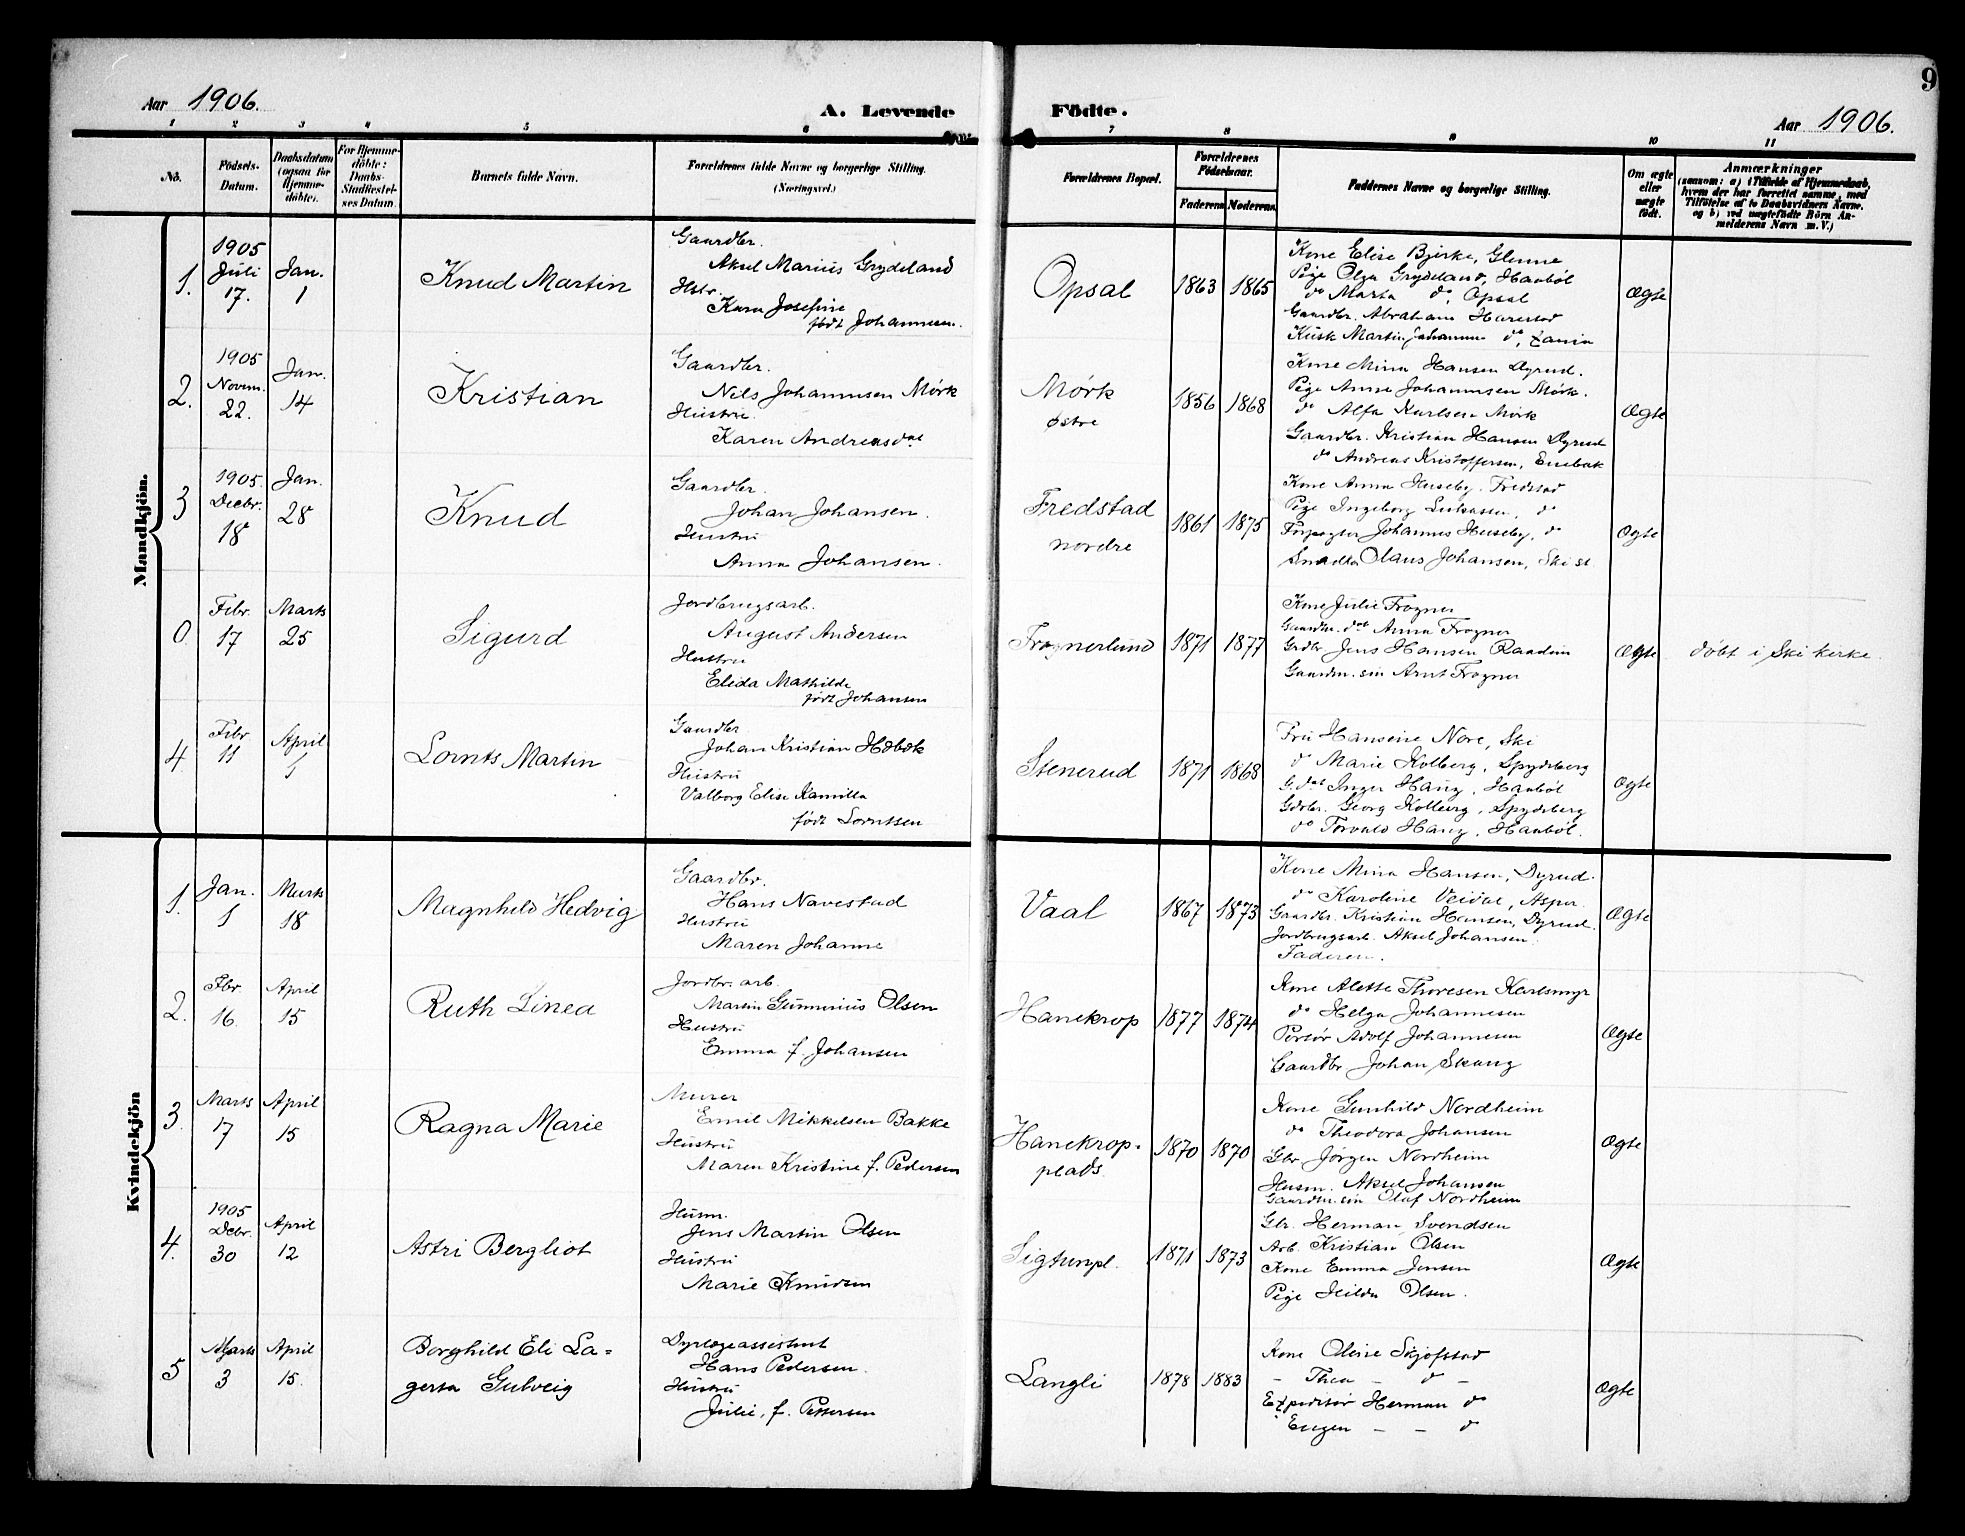 9
Aar 1906.
A. Levende Födte.
Aar 1906.
1 2 3 4 5 6 7 8 9 10 11
No.
Födsels-
Datum.
Daabsdatum
(ogsaa for
Hjemme-
döbte).
For Hjemme-
döbte:
Daabs-
Stadfæstel-
ses Datum.
Barnets fulde Navn.
Forældrenes fulde Navne og borgerlige Stilling.
(Næringsvei.)
Forældrenes Bopæl.
Forældrenes
Födselsaar.
Faderens Moderens
Faddernes Navne og borgerlige Stilling.
Om ægte
eller
uægte
födt.
Anmærkninger
(saasom: a) i Tilfælde af Hjemmedaab,
hvem der har forrettet samme, med
Tilföielse af to Daabsvidners Navne.
og b) ved uægtefödte Börn An-
melderens Navn m. V.)
Mandkjön.
1.
1905
Juli
17.
Jan.
1
Knud Martin
Gaardbr.
Aksel Marius Grydeland
Hstr.
Kara Josefine
født Johannesen.
Opsal
1863 1865
Kone Elise Bjerke, Glenne
Pige Olga Grydeland, Haabøl
do Marta do, Opsal
Gaardbr. Abraham Harestad
Kusk Martin Johannesen do,
Ægte
2.
1905
Novem.
22.
Jan.
14
Kristian
Gaardbr.
Nils Johannesen Mørk
Hustru
Karen Andreasdat
Mørk
østre
1856 1868
Kone Mina Hansen Dyrud.
Pige Anna Johannesen Mørk.
do Alfa Karlsen Mørk
Gaardbr. Kristian Hansen Dyrud
do Andreas Kristoffersen, Enebak
Ægte
3
1905.
Decbr.
18
Jan.
28
Knud
Gaardbr.
Johan Johansen.
Hustru
Anna Johansen.
Fredstad
nordre
1861 1875
Kone Anna Huseby. Fredstad
Pige Ingeborg do
Forpagter Johannes Huseby, do
Olaus Johansen, Ski st.
Ægte
0
Febr.
17
Marts
25
Sigurd
Jordbrugsarb.
August Andersen
Hustru
Elida Mathilde
født Johansen
Frognerlund
1871 1877
Kone Julie Frogner
Gaardm. dat Anna Frogner
Grdbr Jens Hansen Raadim
Gaardm. sin Arnt Frogner
Ægte
døbt i Ski kirke
4
Febr.
11
April
1
Lornts Martin
Gaardbr
Johan Kristian Hebæk
Hustru
Valborg Elise Kamilla
født Lorntsen
Stenerud
1871 1868
Fru Hansine Nore, Ski
do Marie Kolberg, Spydeberg
G.dat Inger Haug, Haabøl
Gdbr. Georg Kolberg, Spydeberg
do Torvald Haug, Haabøl.
Ægte
Kvindekjön
1.
Jan.
1
Marts
18
Magnhild Hedvig
Gaardbr.
Hans Navestad
Hustru
Maren Johanne
Vaal
1867 1873
Kone Mina Hansen, Dyrud.
do Karoline Veidal, Asper.
Gaardbr. Kristian Hansen, Dyrud.
Jordbrugsarb. Aksel Johansen.
Faderen.
Ægte
2.
Fbr.
16
April
15
Ruth Linea
Jordbr. arb.
Martin Gunnerius Olsen
Hustru
Emma f. Johansen
Hanekrop
1877 1874
Kone Alette Thoresen Karlsmyr
do Helga Johannesen
Portør Adolf Johannesen
Gaardbr Johan Skaug
Ægte
3.
Marts
17
April
15
Ragna Marie
Murer
Emil Mikkelsen Bakke
Hustru
Maren Kristine f. Pedersen
Hanekrop-
plads
1870 1870
Kone Gunhild Nordheim
do Theodora Johansen
Gbr Jörgen Nordheim
Husm. Aksel Johansen
Gaardm. sin Olaf Nordheim
Ægte
4.
1905
Decbr.
30
April
12
Astri Bergliot
Husm.
Jens Martin Olsen
Hustru
Marie Knudsen
Sigtunpl.
1871 1873
Gbr. Herman Svendsen
Arb. Kristian Olsen
Kone Emma Jensen
Pige Hilda Olsen.
Ægte
5
Marts
3
April
15.
Borghild Eli La=
gerta Gulveig
Dyrlægeassistent
Hans Pedersen.
Hustru
Julie, f. Pettersen
Langli
1878 1883
Kone Oline Skjofstad
– Thea – do –
Expeditør Herman do
Eugen – – do
Ægte